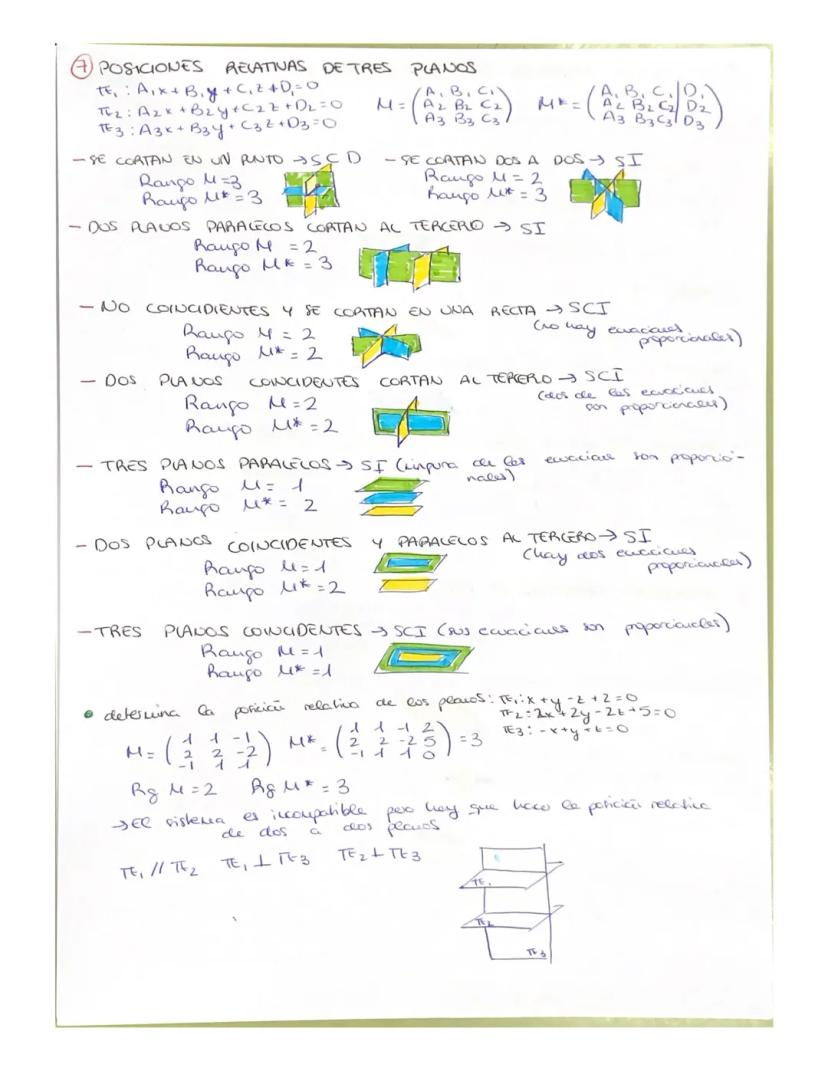 ⑦ POSICIONES RELATIVAS DE TRES PLANOS
π₁ : A₁x + B₁y + C₁z + D₁ = 0
π₂ : A₂x + B₂y + C₂z + D₂ = 0
π₃ : A₃x + B₃y + C₃z + D₃ = 0
M = (A₁ B₁ C₁
A₂ B₂ C₂
A₃ B₃ C₃)
M* = (A₁ B₁ C₁ | D₁
A₂ B₂ C₂ | D₂
A₃ B₃ C₃ | D₃)
- SE CORTAN EN UN PUNTO → SCD
Rango M = 3
Rango M* = 3
- SE CORTAN DOS A DOS → SI
Rango M = 2
Rango M* = 3
- DOS PLANOS PARALELOS CORTAN AL TERCERO → SI
Rango M = 2
Rango M* = 3
- NO COINCIDIENTES Y SE CORTAN EN UNA RECTA → SCI
(no hay ecuaciones
proporcionales)
Rango M = 2
Rango M* = 2
- DOS PLANOS COINCIDENTES CORTAN AL TERCERO → SCI
(dos de las ecuaciones
son proporcionales)
Rango M = 2
Rango M* = 2
- TRES PLANOS PARALELOS → SI (ninguna de las ecuaciones son proporcio-
nales)
Rango M = 1
Rango M* = 2
- DOS PLANOS COINCIDENTES Y PARALELOS AL TERCERO → SI
(hay dos ecuaciones
proporcionales)
Rango M = 1
Rango M* = 2
- TRES PLANOS COINCIDENTES → SCI (sus ecuaciones son proporcionales)
Rango M = 1
Rango M* = 1
• determina la posición relativa de los planos: π₁: x + y - z + 2 = 0
π₂: 2x + 2y - 2z + 5 = 0
π₃: -x + y + z = 0
M = (1 1 -1
2 2 -2
-1 1 1)
M* = (1 1 -1 2
2 2 -2 5
-1 1 1 0) = 3
Rg M = 2 Rg M* = 3
→ El sistema es incompatible pero hay que hacer la posición relativa
de dos a dos planos
π₁ // π₂ π₁ ⊥ π₃ π₂ ⊥ π₃
π₁
π₂
π₃